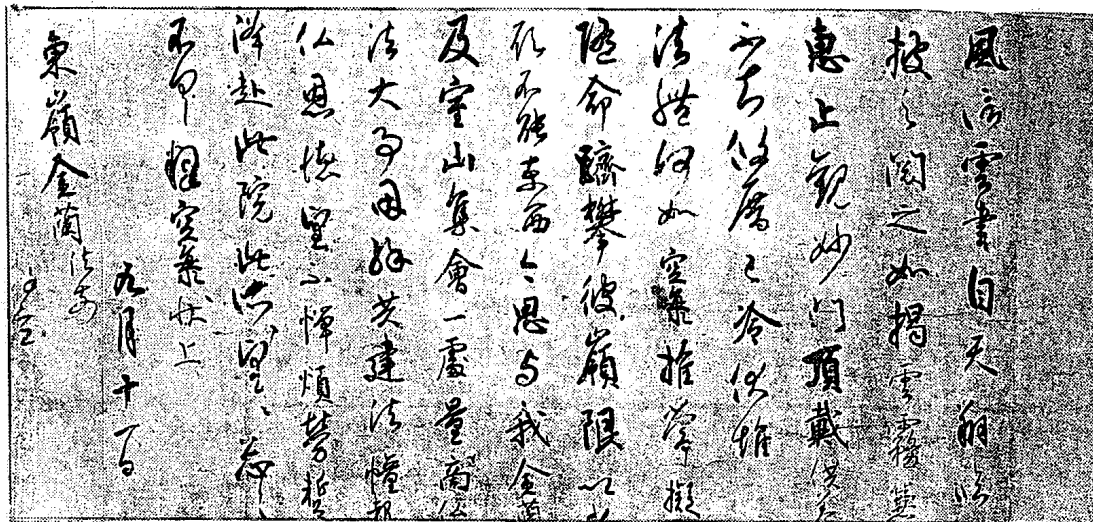 風信雲書自天翔臨
披之閲之如揭雲霧兼
惠止觀妙門頂戴供養
不知攸厝已冷伏惟
法體何如空海推常擬
隨命躋攀彼嶺限以少
願不能東西今思与我金蘭
及室山集會一處量商仏
法大事因緣共建法幢報
仏恩徳望不憚煩勞蹔
降赴此院此所望々忩々
不具釋空海状上
九月十一日
東嶺金蘭法前
謹空